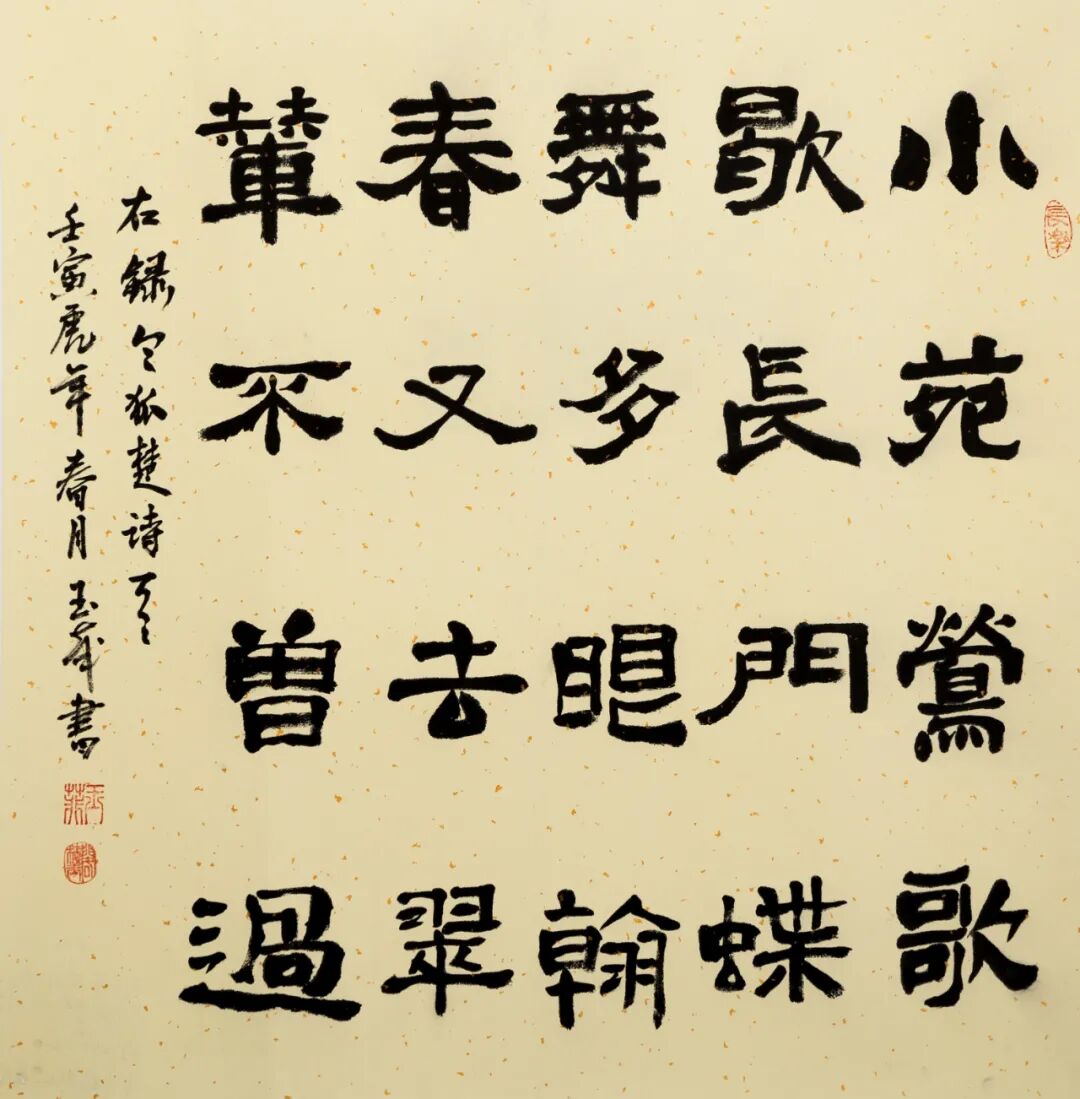 小苑鶯歌
歇長門蝶
舞多眼翰
春又去翠
輦不曾過
右録令狐楚诗
壬寅虎年春月玉書